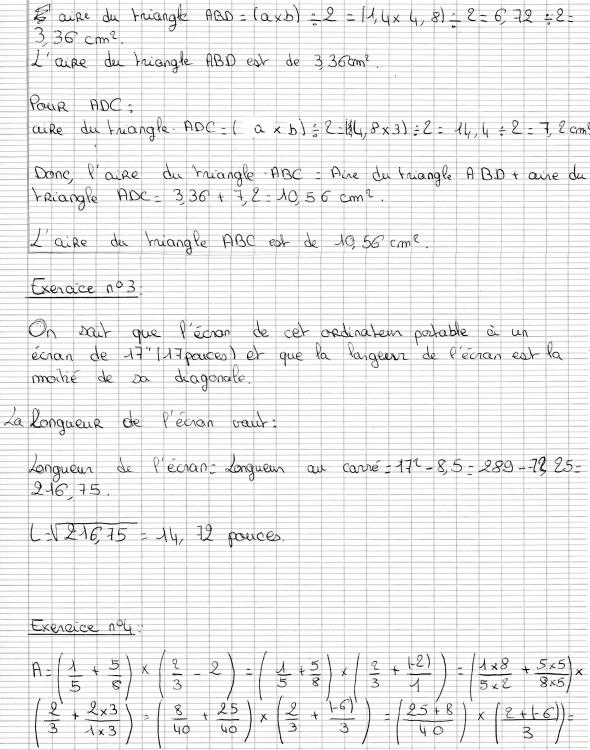 aire du triangle ABD = (a×b) ÷ 2 = (1,4 × 4,8) ÷ 2 = 6,72 ÷ 2 =
3,36 cm².
L'aire du triangle ABD est de 3,36 cm².
Pour ADC :
aire du triangle ADC = ( a × b) ÷ 2 = (4,8 × 3) ÷ 2 = 14,4 ÷ 2 = 7,2 cm²
Donc, l'aire du triangle ABC = Aire du triangle ABD + aire du
triangle ADC = 3,36 + 7,2 = 10,56 cm².
L'aire du triangle ABC est de 10,56 cm².
Exercice n°3 :
On sait que l'écran de cet ordinateur portable à un
écran de 17" (17 pouces) et que la largeur de l'écran est la
moitié de sa diagonale.
La longueur de l'écran vaut :
Longueur de l'écran = Longueur au carré = 17² - 8,5 = 289 - 72,25 =
216,75.
L = √216,75 = 14,72 pouces.
Exercice n°4 :
A = (1/5 + 5/8) × (2/3 - 2) = (1/5 + 5/8) × (2/3 + (-2)/1) = ((1×8)/(5×2) + (5×5)/(8×5)) ×
(2/3 + (2×3)/(1×3)) = (8/40 + 25/40) × (2/3 + (-6)/3) = ((25+8)/40) × ((2+(-6))/3) =